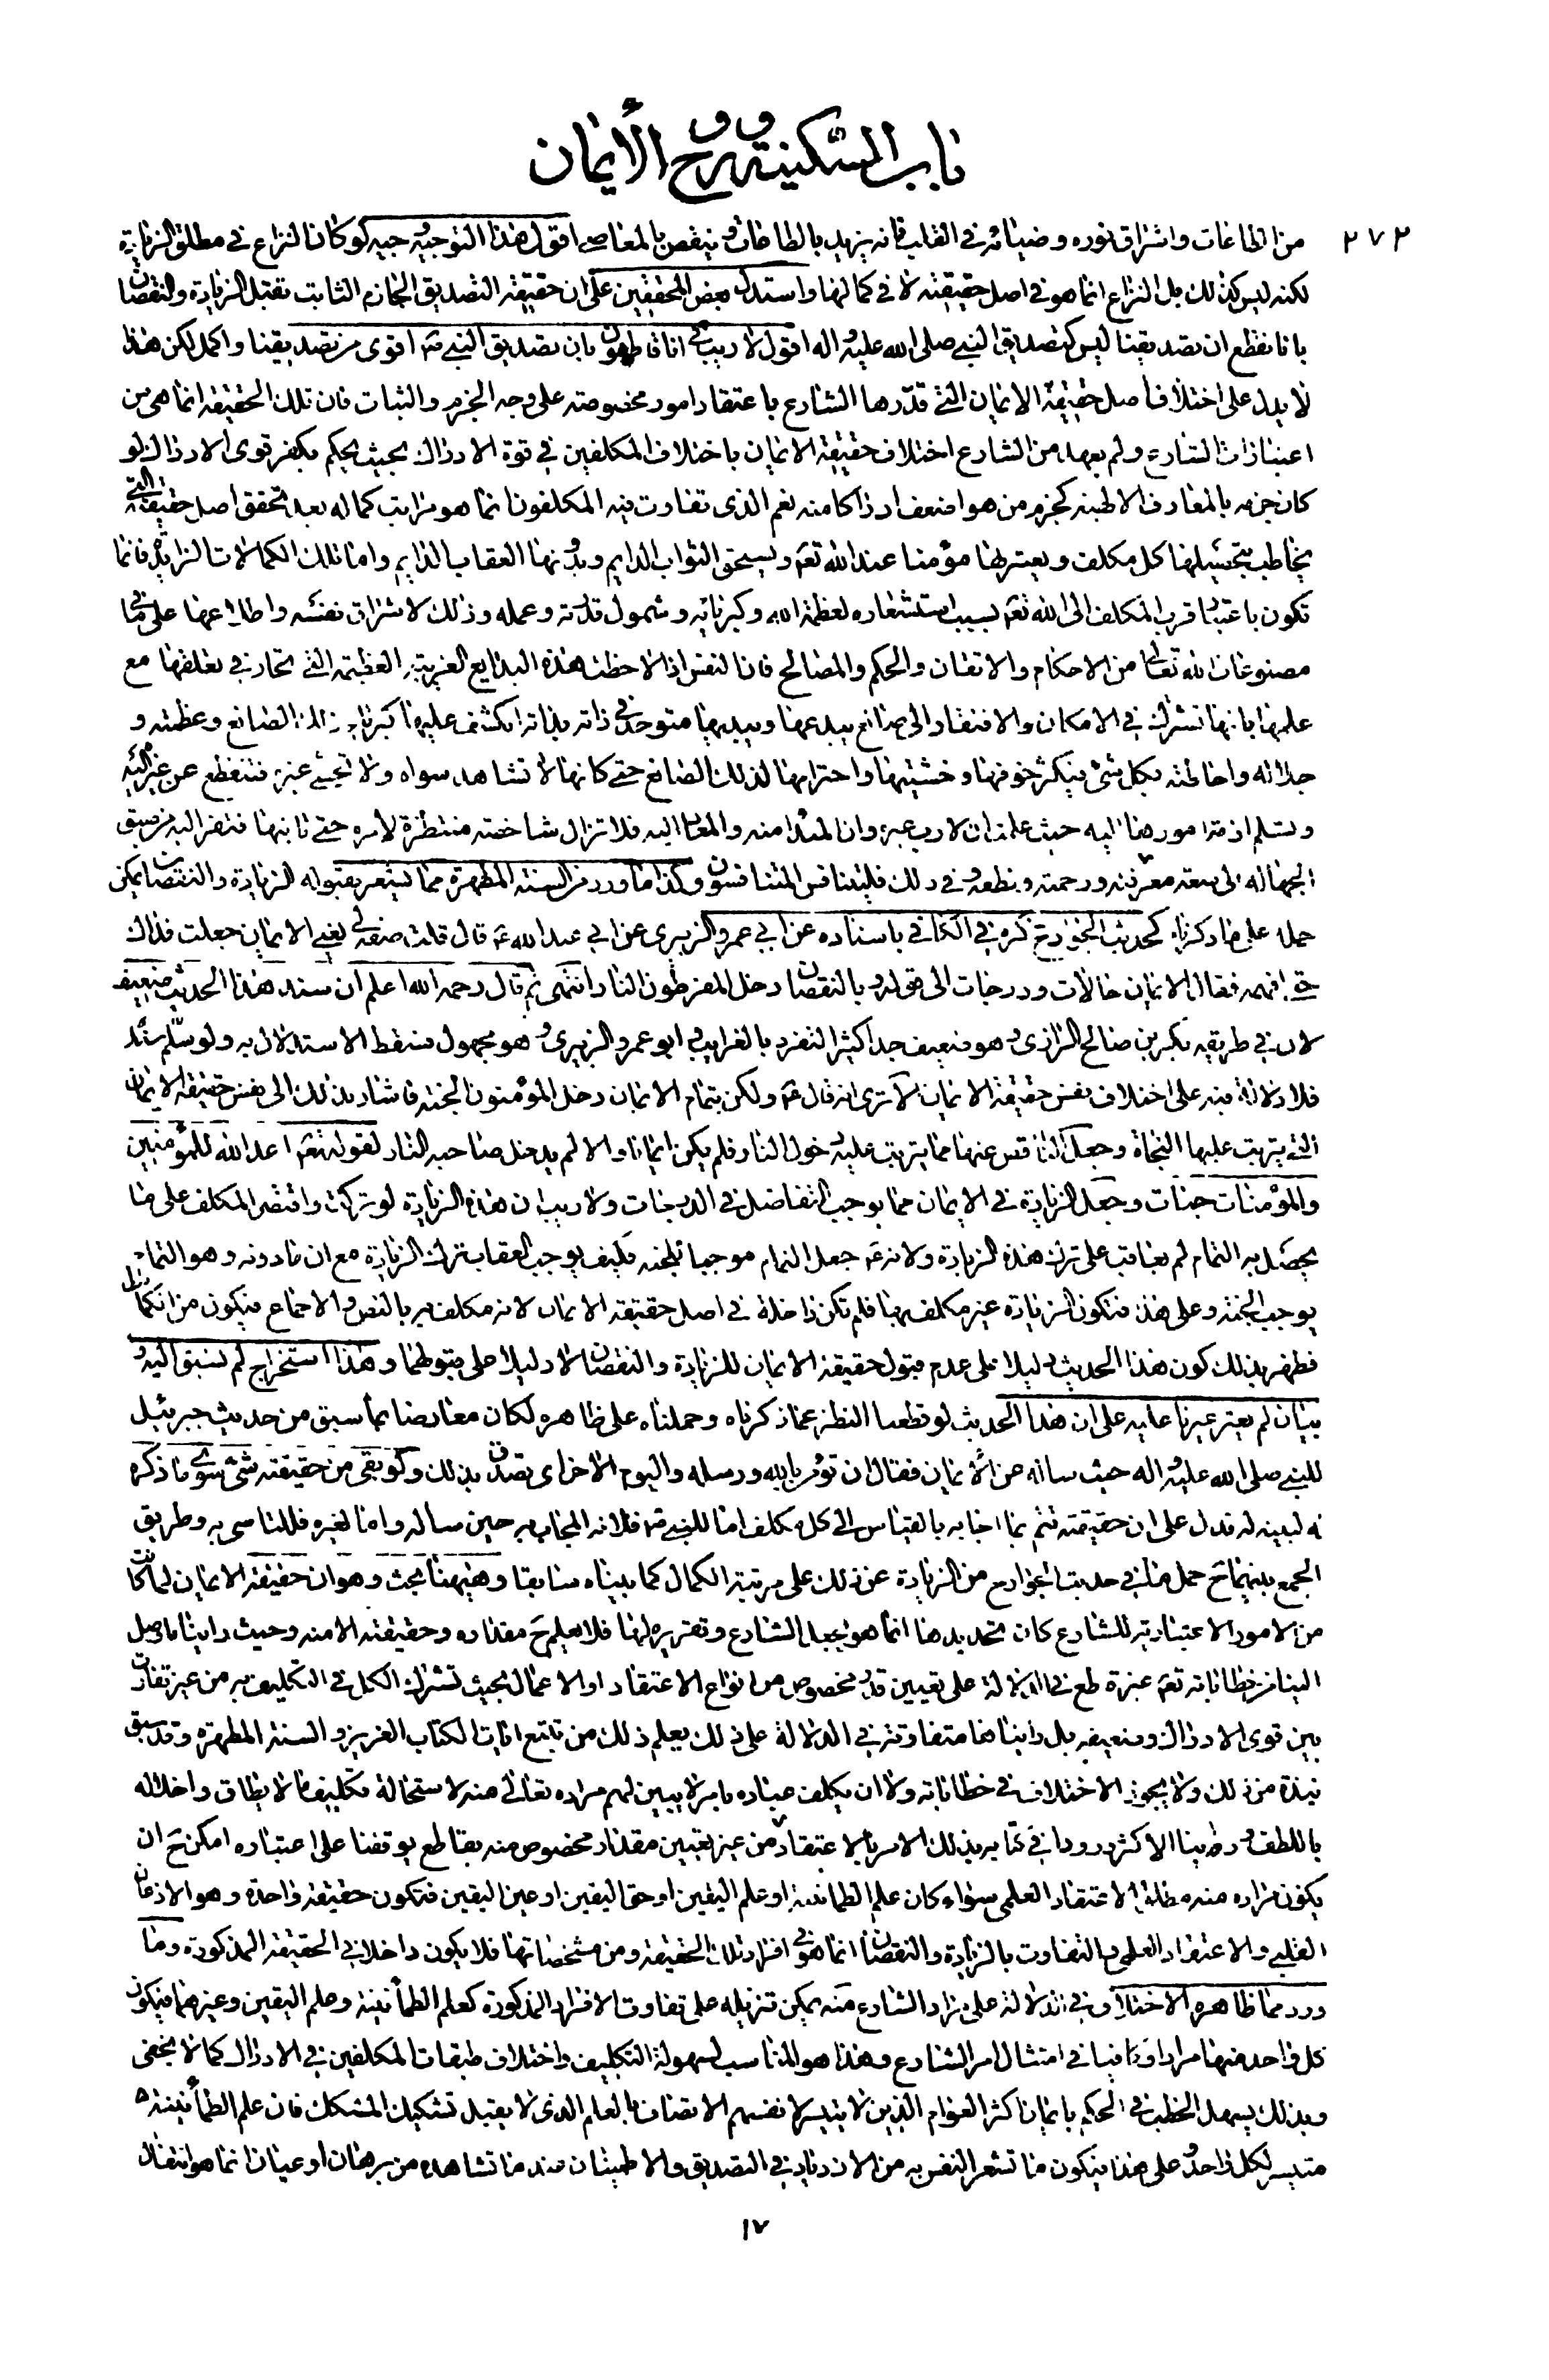 باب السكينة وروح الأيمان
٢٧٢
من الطاعات واشراق نوره وضيائه في القلب فانه يزيد بالطاعات وينقص بالمعاصي اقول هذا التوجيه وجيه لو كان النزاع في مطلق الزيادة
لكنه ليس كذلك بل النزاع انما هو في اصل حقيقته لا في كمالها واستدل بعض المحققين على ان حقيقة التصديق الجازم الثابت تقبل الزيادة والنقصان
بانا نقطع ان تصديقنا ليس كتصديق النبي صلى الله عليه واله اقول لا ريب في انا قاطعون بان تصديق النبي ص اقوى من تصديقنا واكمل لكن هذا
لا يدل على اختلاف اصل حقيقة الايمان التي قدرها الشارع باعتقاد امور مخصوصة على وجه الجزم والثبات فان تلك الحقيقة انما هي من
اعتبارات الشارع ولم يعهد من الشارع اختلاف حقيقة الايمان باختلاف المكلفين في قوة الادراك بحيث يحكم بكفر قوي الادراك لو
كان جزمه بالمعارف الالهية كجزم من هو اضعف ادراكا منه نعم الذي تفاوت فيه المكلفون انما هو مراتب كماله بعد تحقق اصل حقيقته التي
يخاطب بتحصيلها كل مكلف ويعتبر بها مؤمنا عند الله تعم ويستحق الثواب الدايم وبدونها العقاب الدايم واما تلك الكمالات الزايدة فانما
تكون باعتبار قرب المكلف الى الله تعم بسبب استشعاره لعظمة الله وكبريائه وشمول قدرته وعلمه وذلك لاشراق نفسه واطلاعها على ما في
مصنوعات الله تعالى من الاحكام والاتقان والحكم والمصالح فان النفس اذا لاحظت هذه البدايع الغريبة العظيمة التي تحار في تعقلها مع
علمها بانها تشترك في الامكان والافتقار الى صانع يبدعها ويبديها متوحد في ذاته بذاته انكشف عليها كبرياء ذلك الصانع وعظمته و
جلاله واحاطته بكل شئ فيكثر خوفها وخشيتها واحترامها لذلك الصانع حتى كانها لا تشاهد سواه ولا تخشى غيره فتنقطع عن غيره اليه
وتسلم ازمة امورها اليه حيث علمت ان لا رب غيره وان المبدا منه والمعاد اليه فلا تزال شاخصة منتظرة لامره حتى تاتيها فتفر اليه من ضيق
الجهالة الى سعة معرفته ورحمته ولطفه وفي ذلك فليتنافس المتنافسون وكذا ما ورد من السنة المطهرة مما يشعر بقبوله الزيادة والنقصان يمكن
حمله على ما ذكرناه كحديث الجوارح ذكره في الكافي باسناده عن ابي عمرو الزبيري عن ابي عبد الله ع قال قلت صفه لي يعني الايمان جعلت فداك
حتى افهمه فقال الايمان حالات ودرجات الى قوله وبالنقصان دخل المفرطون النار انتهى ثم قال رحمه الله اعلم ان سند هذا الحديث ضعيف
لان في طريقه بكر بن صالح الرازي وهو ضعيف جدا كثير التفرد بالغرايب وابو عمرو الزبيري وهو مجهول فسقط الاستدلال به ولو سلم سنده
فلا دلالة فيه على اختلاف نفس حقيقة الايمان الا ترى انه قال ع ولكن بتمام الايمان دخل المؤمنون الجنة فاشار بذلك الى نفس حقيقة الايمان
التي يترتب عليها النجاة وجعل الناقص عنها مما يترتب عليه دخول النار فلم يكن ايمانا والا لم يدخل صاحبه النار لقوله تعم اعد الله للمؤمنين
والمؤمنات جنات وجعل الزيادة في الايمان مما يوجب التفاضل في الدرجات ولا ريب ان هذه الزيادة لو تركت واقتصر المكلف على ما
يحصل به التمام لم يعاقب على ترك هذه الزيادة ولانه ع جعل التمام موجبا للجنة فكيف يوجب العقاب ترك الزيادة مع ان ما دونه وهو التمام
يوجب الجنة وعلى هذا فتكون الزيادة غير مكلف بها فلم تكن داخلة في اصل حقيقة الايمان لانه مكلف به بالنص والاجماع فيكون من الكمال
فظهر بذلك كون هذا الحديث دليلا على عدم قبول حقيقة الايمان للزيادة والنقصان لا دليلا على قبولها وهذا استخراج لم نسبق اليه و
بيان لم يعثر غيرنا عليه على ان هذا الحديث لو قطعنا النظر عما ذكرناه وحملناه على ظاهره لكان معارضا بما سبق من حديث جبرئيل
للنبي صلى الله عليه واله حيث ساله عن الايمان فقال ان تؤمن بالله ورسله واليوم الاخر اي تصدق بذلك ولو بقي من حقيقته شئ سوى ما ذكره
له لبينه له فدل على ان حقيقته تتم بما اجابه بالقياس الى كل مكلف اما للنبي ص فلانه المجاب به حين ساله واما لغيره فللتاسي به وطريق
الجمع بينهما ح حمل ما في حديث الجوارح من الزيادة عن ذلك على مرتبة الكمال كما بيناه سابقا وهيهنا بحث وهو ان حقيقة الايمان لما كانت
من الامور الاعتبارية للشارع كان تحديدها انما هو بجعل الشارع وتقريره لها فلا يعلم ح مقداره وحقيقته الا منه وحيث راينا ما وصل
الينا من خطاباته تعم غير قاطع في الدلالة على تعيين قدر مخصوص من انواع الاعتقاد او الاعمال بحيث تشترك الكل في التكليف به من غير تفاوت
بين قوي الادراك وضعيفه بل راينا ها متفاوتة في الدلالة على ذلك يعلم ذلك من تتبع ايات الكتاب العزيز والسنة المطهرة وقد سبق
نبذة من ذلك ولا يجوز الاختلاف في خطاباته ولا ان يكلف عباده بامر لا يبين لهم مراده تعالى منه لاستحالة تكليف ما لا يطاق واخلاله
باللطف وراينا الاكثر ورودا في كتابه بذلك الامر بالاعتقاد من غير تعيين مقدار مخصوص منه بقاطع يوقفنا على اعتباره امكن ح ان
يكون مراده منه مطلق الاعتقاد العلمي سواء كان علم الطمانينة او علم اليقين او حق اليقين او عين اليقين فتكون حقيقة واحدة وهو الاذعان
القلبي والاعتقاد العلمي والتفاوت بالزيادة والنقصان انما هو في افراد تلك الحقيقة ومن مشخصاتها فلا يكون داخلا في الحقيقة المذكورة وما
ورد مما ظاهره الاختلاف في الدلالة على مراد الشارع منه يمكن تنزيله على تفاوت الافراد المذكورة كعلم الطمأنينة وعلم اليقين وغيرهما فيكون
كل واحد منها مرادا وكافيا في امتثال امر الشارع وهذا هو المناسب لسهولة التكليف واختلاف طبقات المكلفين في الادراك كما لا يخفى
وبذلك يسهل الخطب في الحكم بايمان اكثر العوام الذين لا يتيسر لانفسهم الاتصاف بالعلم الذي لا يقبل تشكيك المشكك فان علم الطمأنينة
متيسر لكل واحد وعلى هذا فيكون ما تشعر النفس به من الازدياد في التصديق والاطمينان عند ما تشاهده من برهان او عيان انما هو انتقال
١٧